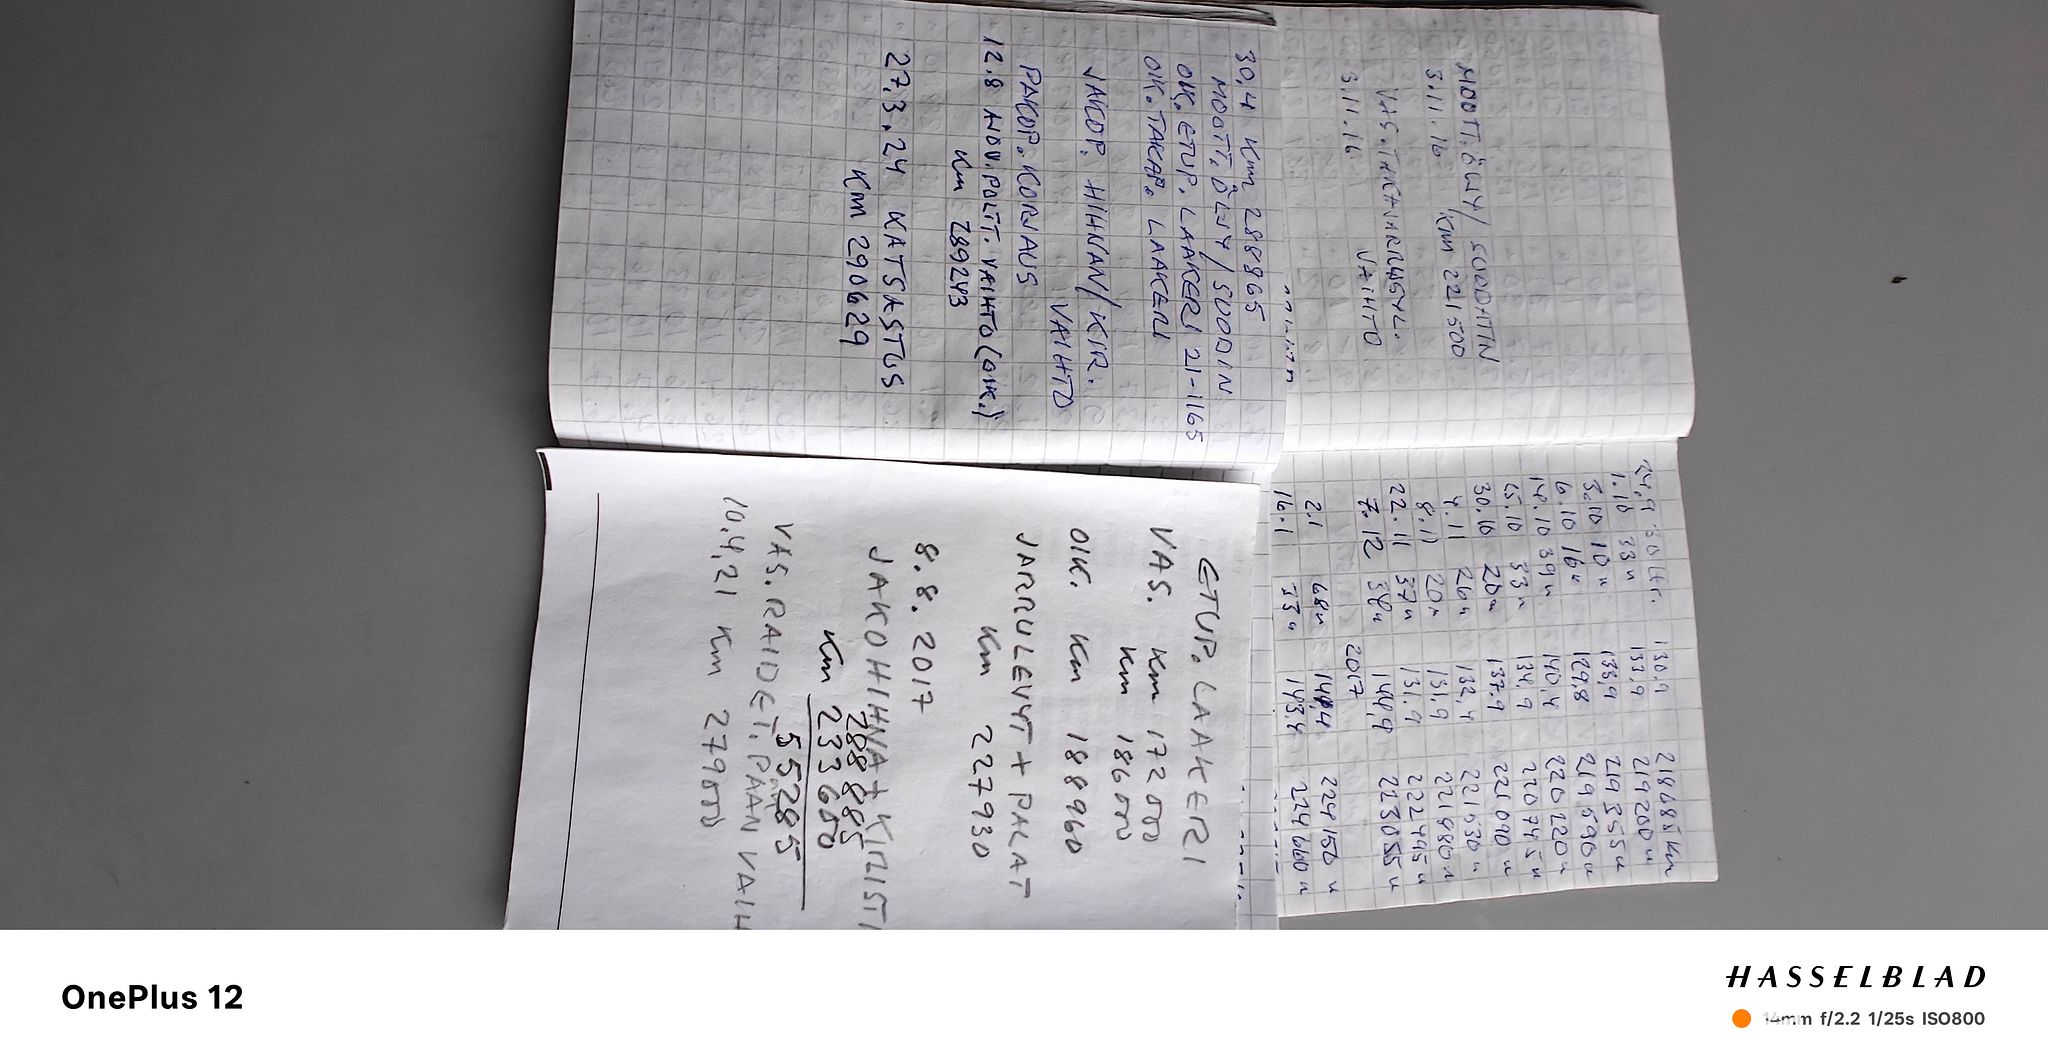 MOOTT.ÖLJY/SUODATIN
3.11.16 Km 221500
VAS.TAKAJARRUSYL.
VAIHTO
3.11.16
24.9 50 ltr. 130,9 218685 km
1.10 33 " 133,9 219200 "
5.10 10 " 133,9 219555 "
6.10 16 " 129,8 219590 "
14.10 39 " 140,4 220220 "
15.10 33 " 134,9 220745 "
30.10 28 " 137,9 221090 "
4.11 26 " 132,4 221530 "
8.11 20 " 131,9 221880 "
22.11 37 " 131,9 222495 "
7.12 38 " 144,9 223055 "
2017
2.1 68 " 144,4 224150 "
16.1 33 " 143,4 224660 "
30.4 Km 288865
MOOTT.ÖLJY/SUODIN
OIK.ETUP.LAAKERI 21-1165
OIK.TAKAP. LAAKERI
JAKOP. HIHNAN/KIR.
VAIHTO
PAKOP.KORJAUS
12.8 AJOV.POLTT. VAIHTO(OIK.)
Km 289243
27.3.24 KATSASTUS
Km 290629
ETUP. LAAKERI
VAS. Km 172000
Km 186000
OIK. Km 188960
JARRULEVYT + PALAT
Km 227930
8.8.2017
JAKOHIHNA + KIRIST
288885
Km 233600
55285
VAS.RAIDET.PÄÄN VAIH
10.4.21 Km 279000
OnePlus 12
HASSELBLAD
14mm f/2.2 1/25s ISO800